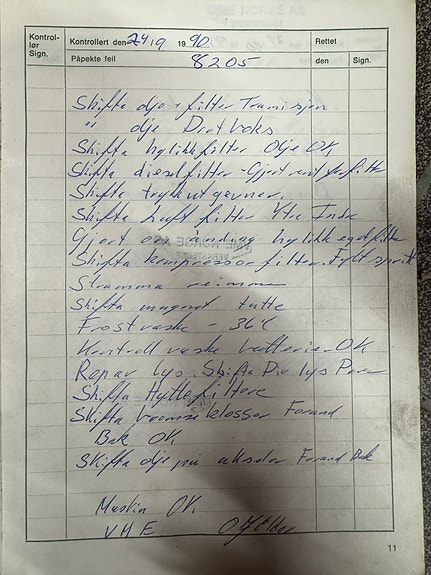 Kontrol-
lør
Sign.
Kontrollert den 24/9 1990
Rettet
Påpekte feil 8205
den
Sign.
Skifte olje + filter Tramisjon
" olje Drotboks
Skifta hylikkfilter Olje OK
Skifta dieselfilter - Gjort rent forfilter
Skifte trykkutgevner.
Skifta Luft filter Ytre Indre
Gjort hylikk
Skifta kompressor filter. Fylt sprit
Stramma reimme
Skifta magnet tutte
Frostveske - 36°C
Kontroll veske batterier OK
Repar lys. Skifta Pir lys Pære
Skifta Hyttefiltere
Skifta bremseklosser Forand
Bak OK
Skifta olje på aksler Forand Bak
Maskin OK.
V.M.E
11